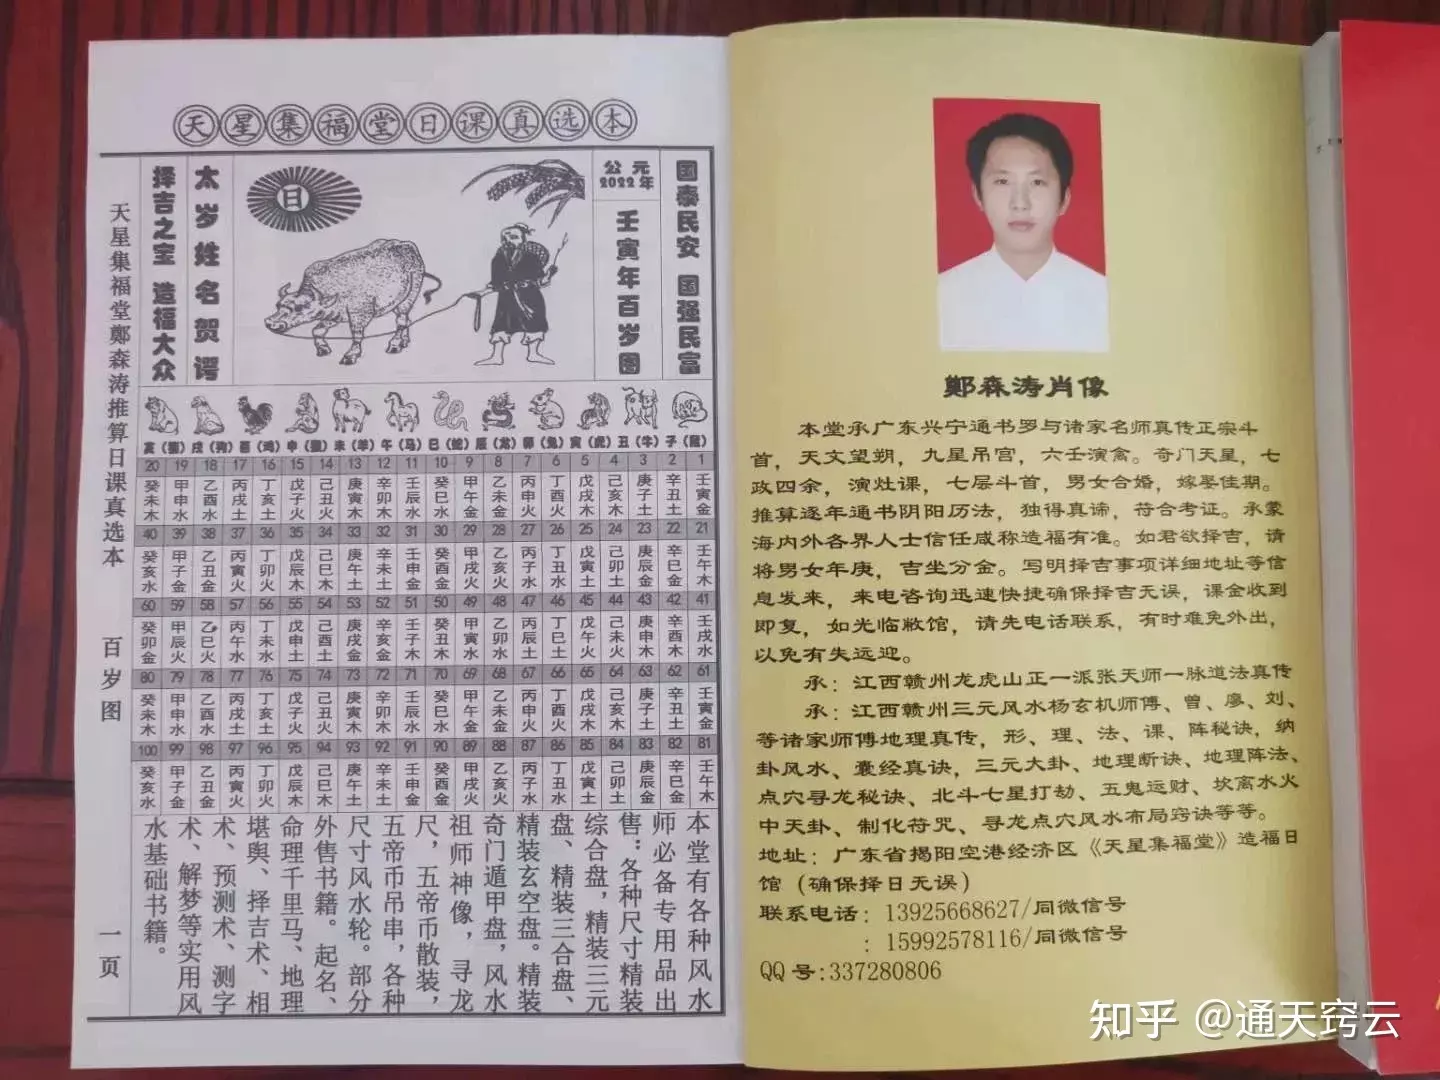 天星集福堂日课真选本
国泰民安 国强民富
公元2022年
壬寅年百岁图
日
太岁姓名贺谔
择吉之宝 造福大众
天星集福堂鄭森涛推算日课真选本 百岁图 一页
亥（猪）戌（狗）酉（鸡）申（猴）未（羊）午（马）巳（蛇）辰（龙）卯（兔）寅（虎）丑（牛）子（鼠）
20 19 18 17 16 15 14 13 12 11 10 9 8 7 6 5 4 3 2 1
癸未木 甲申水 乙酉水 丙戌土 丁亥土 戊子火 己丑火 庚寅木 辛卯木 壬辰水 癸巳水 甲午金 乙未金 丙申火 丁酉火 戊戌木 己亥木 庚子土 辛丑土 壬寅金
40 39 38 37 36 35 34 33 32 31 30 29 28 27 26 25 24 23 22 21
癸亥水 甲子金 乙丑金 丙寅火 丁卯火 戊辰木 己巳木 庚午土 辛未土 壬申金 癸酉金 甲戌火 乙亥火 丙子水 丁丑水 戊寅土 己卯土 庚辰金 辛巳金 壬午木
60 59 58 57 56 55 54 53 52 51 50 49 48 47 46 45 44 43 42 41
癸卯金 甲辰火 乙巳火 丙午水 丁未水 戊申土 己酉土 庚戌金 辛亥金 壬子木 癸丑木 甲寅水 乙卯水 丙辰土 丁巳土 戊午火 己未火 庚申木 辛酉木 壬戌水
80 79 78 77 76 75 74 73 72 71 70 69 68 67 66 65 64 63 62 61
癸未木 甲申水 乙酉水 丙戌土 丁亥土 戊子火 己丑火 庚寅木 辛卯木 壬辰水 癸巳水 甲午金 乙未金 丙申火 丁酉火 戊戌木 己亥木 庚子土 辛丑土 壬寅金
100 99 98 97 96 95 94 93 92 91 90 89 88 87 86 85 84 83 82 81
癸亥水 甲子金 乙丑金 丙寅火 丁卯火 戊辰木 己巳木 庚午土 辛未土 壬申金 癸酉金 甲戌火 乙亥火 丙子水 丁丑水 戊寅土 己卯土 庚辰金 辛巳金 壬午木
本堂有各种风水
师必备专用品出
售：各种尺寸精装
综合盘，精装三元
盘、精装三合盘、
精装玄空盘。精装
奇门遁甲盘，风水
祖师神像，寻龙
尺，五帝币散装，
五帝币吊串，各种
尺寸风水轮。部分
外售书籍。起名、
命理千里马、地理
堪舆、择吉术、相
术、预测术、测字
术、解梦等实用风
水基础书籍。
鄭森涛肖像
本堂承广东兴宁通书罗与诸家名师真传正宗斗
首，天文望朔，九星吊宫，六壬演禽。奇门天星，七
政四余，演灶课，七层斗首，男女合婚，嫁娶佳期。
推算逐年通书阴阳历法，独得真谛，符合考证。承蒙
海内外各界人士信任咸称造福有准。如君欲择吉，请
将男女年庚，吉坐分金。写明择吉事项详细地址等信
息发来，来电咨询迅速快捷确保择吉无误，课金收到
即复，如光临敝馆，请先电话联系，有时难免外出，
以免有失远迎。
承：江西赣州龙虎山正一派张天师一脉道法真传
承：江西赣州三元风水杨玄机师傅、曾、廖、刘、
等诸家师傅地理真传，形、理、法、课、阵秘诀，纳
卦风水、囊经真诀，三元大卦、地理断诀、地理阵法、
点穴寻龙秘诀、北斗七星打劫、五鬼运财、坎离水火
中天卦、制化符咒、寻龙点穴风水布局窍诀等等。
地址：广东省揭阳空港经济区《天星集福堂》造福日
馆（确保择日无误）
联系电话：13925668627/同微信号
：15992578116/同微信号
QQ号:337280806
知乎 @通天窍云